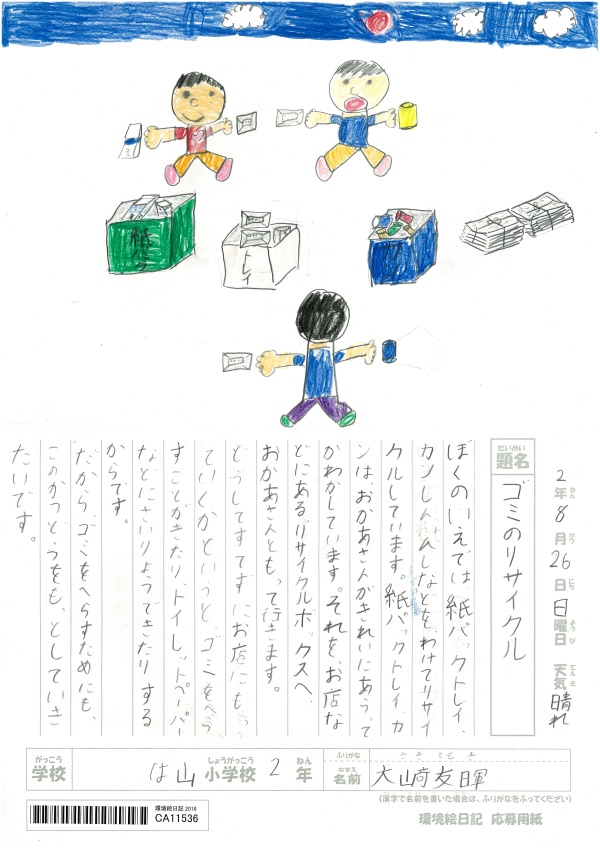 紙パック
トレイ
カン
2年8月26日日曜日 天気晴れ
ねん がつ にち ようび てんき
だいめい
題名
ゴミのリサイクル
ぼくのいえでは、紙パックトレイ、
カンしんぶんしなどを、わけてリサイ
クルしています。紙パックトレイ、カ
ンは、おかあさんがきれいにあらって
かわかしています。それを、お店な
どにあるリサイクルボックスへ、
おかあさんともって行きます。
どうしてすてずにお店にもっ
ていくかというと、ゴミをへら
すことができたり、トイレットペーパー
などにさいりようできたりする
からです。
だから、ゴミをへらすためにも、
このかつどうをもっとしていき
たいです。
がっこう
学校
は山
しょうがっこう
小学校
2
ねん
年
ふりがな
なまえ
名前
大山奇友暉
(漢字で名前を書いた場合は、ふりがなをふってください)
環境絵日記 2018
CA11536
環境絵日記 応募用紙